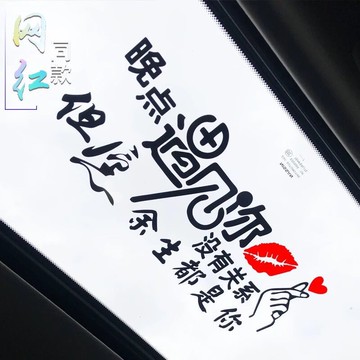 网红
同款
晚点
遇见你
没有关系
但愿
余生都是你